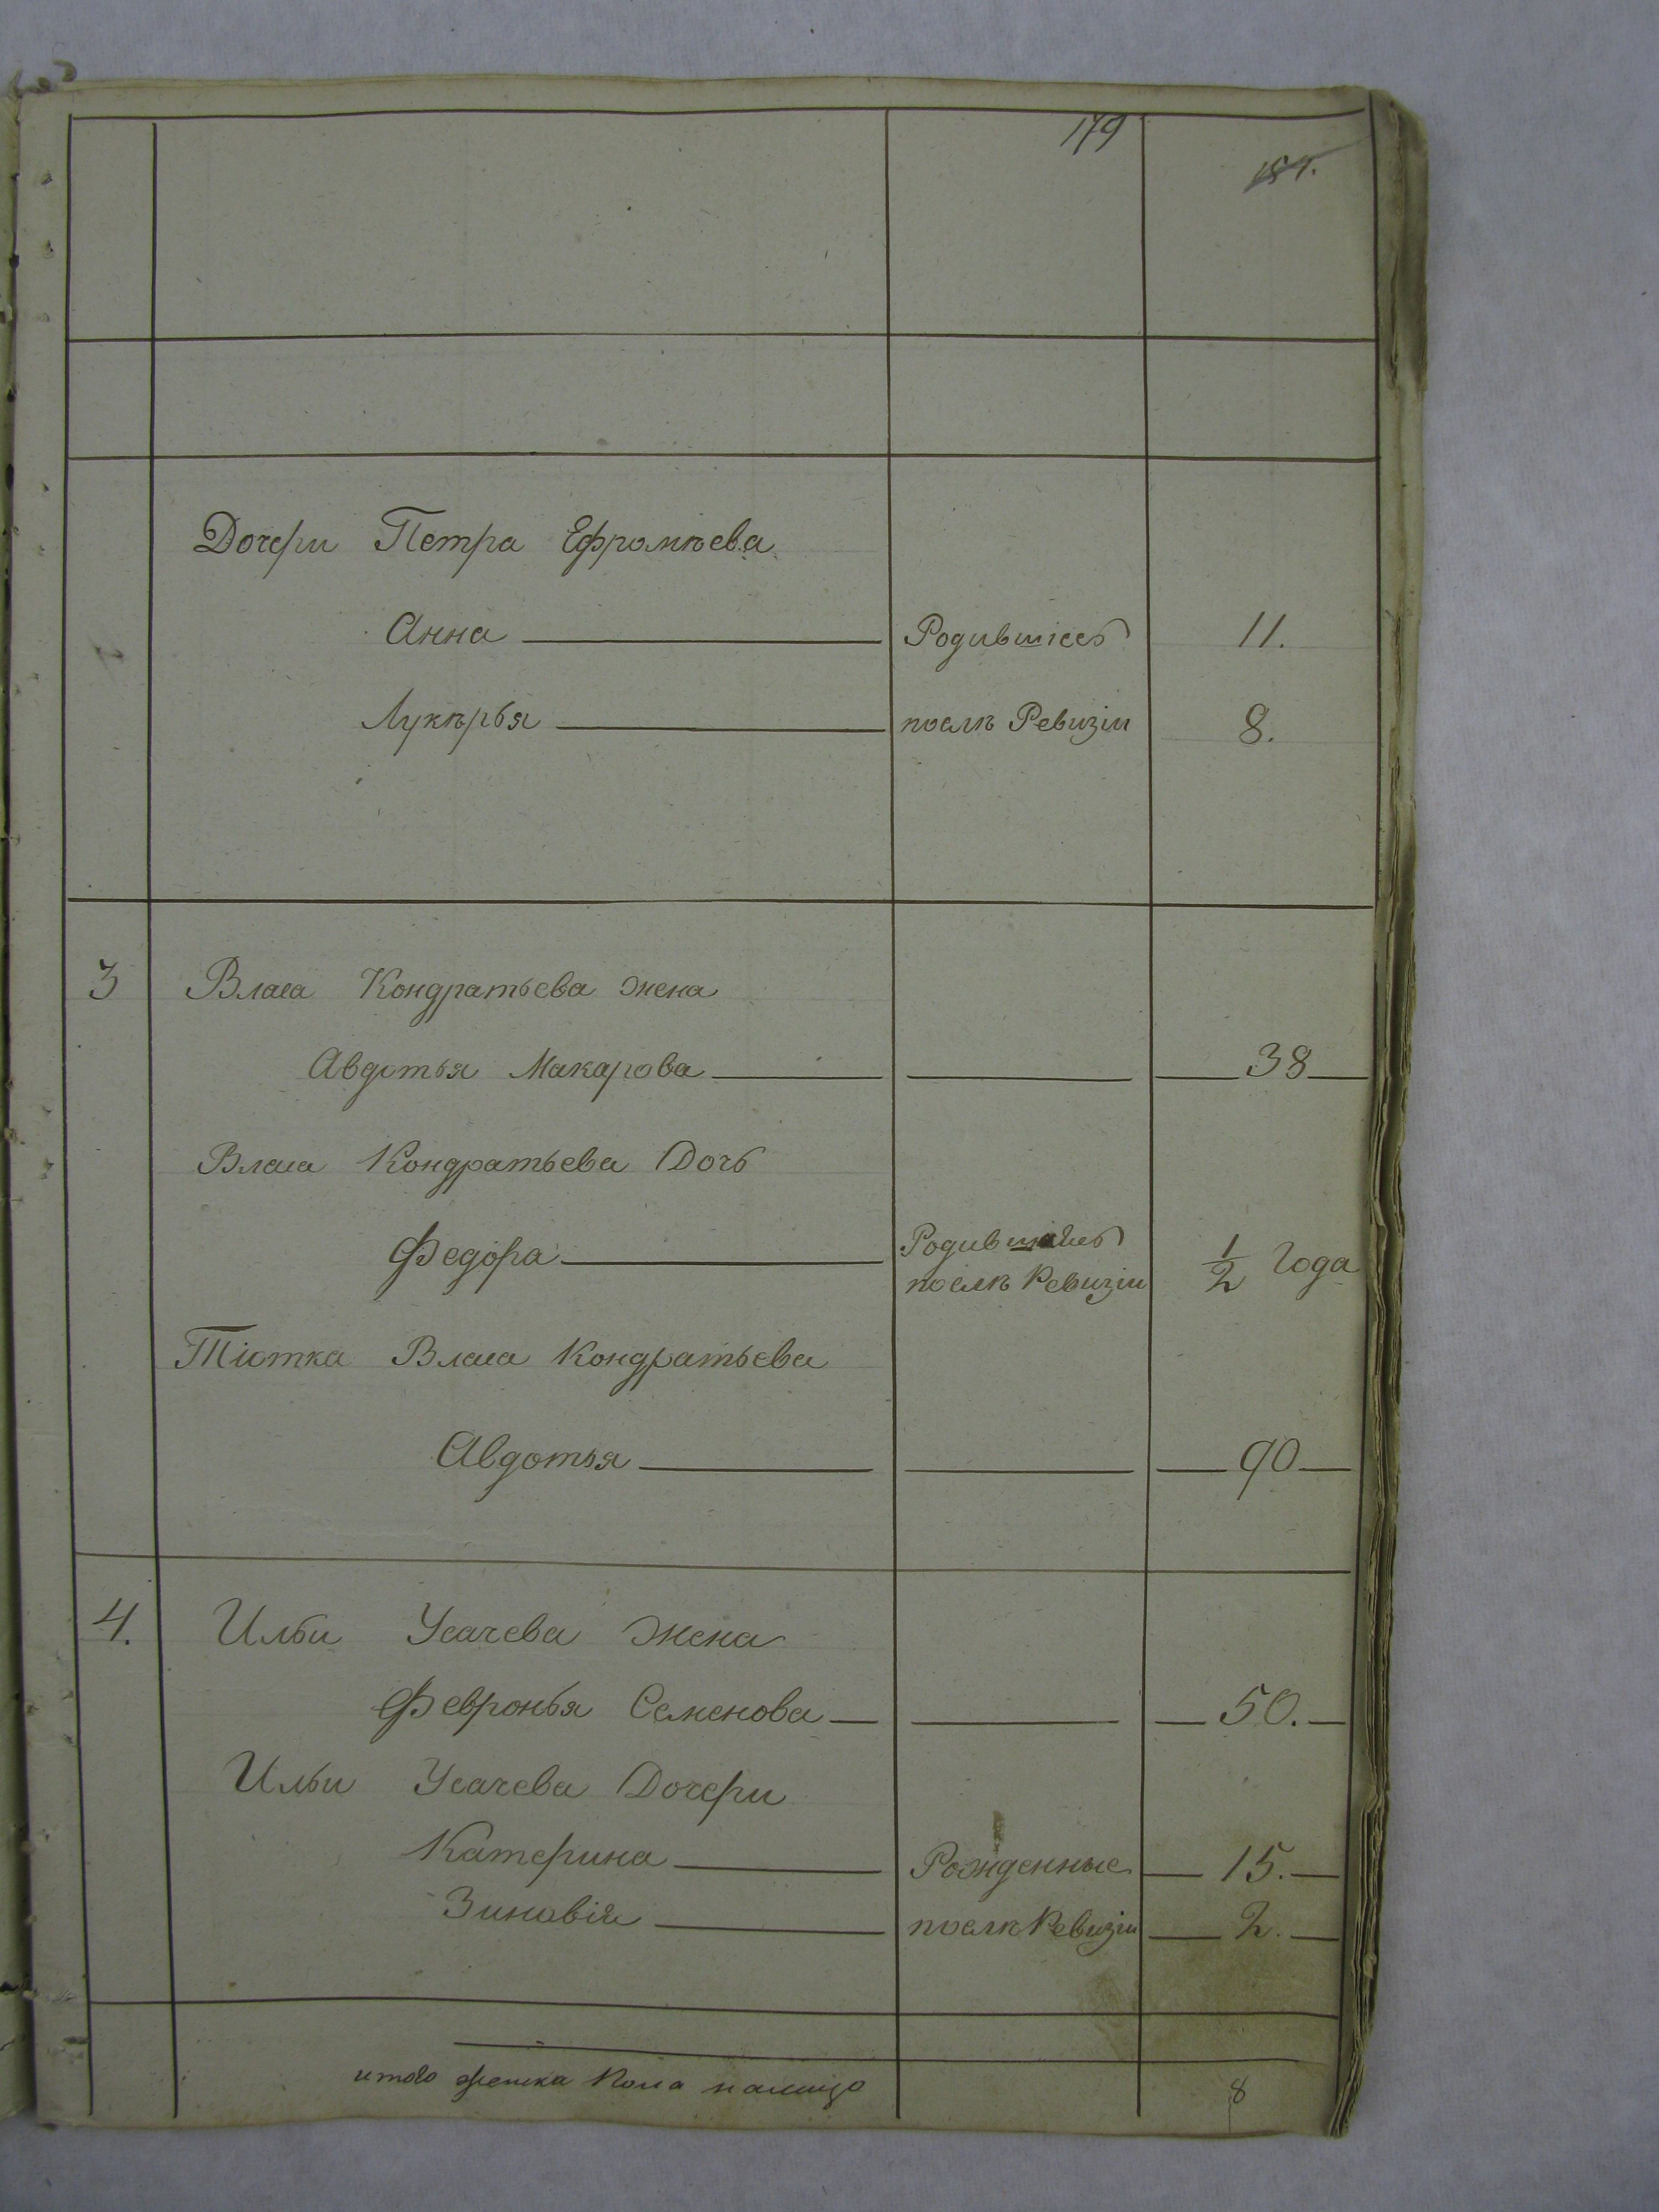 179
Дочери Петра Ефромѣева
Анна Родившіесь 11.
Лукѣрья послѣ Ревизіи 8.
3 Власа Кондратьева жена
Авдотья Макарова 38
Власа Кондратьева Дочь
Федора Родившаясь послѣ Ревизіи 1/2 Года
Тіотка Власа Кондратьева
Авдотья 90
4. Ильи Усачева жена
Февронья Семенова 50.
Ильи Усачева Дочери
Катерина Рожденные 15.
Зиновія послѣ Ревизіи 2.
итого женска Пола налицо 8